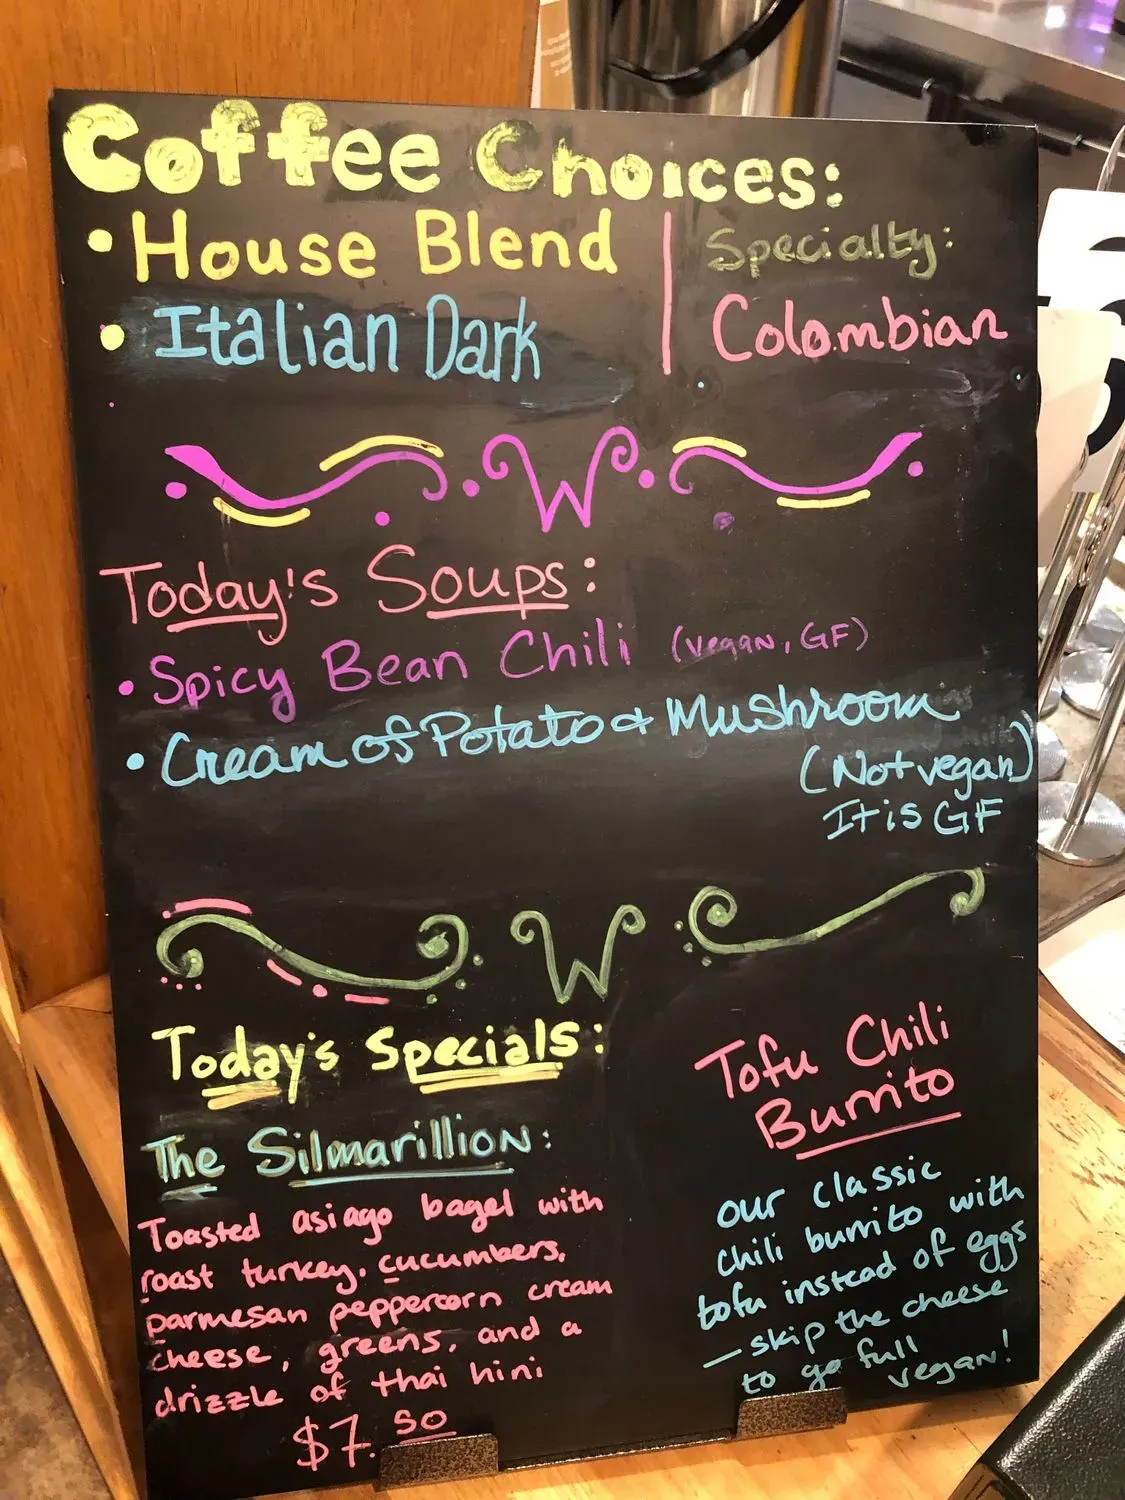 Coffee Choices:
• House Blend
• Italian Dark
Specialty:
Colombian
W
Today's Soups:
• Spicy Bean Chili (vegan, GF)
• Cream of Potato & Mushroom
(Not vegan)
It is GF
W
Today's Specials:
The Silmarillion:
Toasted asiago bagel with
roast turkey, cucumbers,
parmesan peppercorn cream
cheese, greens, and a
drizzle of thai hini
$7.50
Tofu Chili
Burrito
our classic
chili burrito with
tofu instead of eggs
— skip the cheese
to go full
vegan!